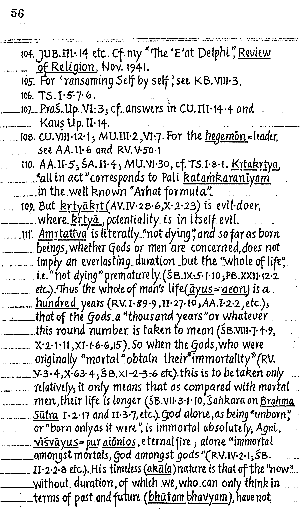 56
104. JUB.III.14 etc. Cf. my "The 'E' at Delphi", Review
of Religion, Nov. 1941.
105. For 'ransoming Self by self', see KB.VIII.3.
106. TS.I.5.7.6.
107. Praś. Up. VI.3; cf. answers in CU.III.14.4 and
Kauṣ Up. II.14.
108. CU.VIII.12.1; MU.III.2, VI.7. For the hegemon=leader,
see AA.II.6 and RV.V.50.1
110. AA.II.5; ŚA.II.4; MU.VI.30, cf. TS.I.8.1. Kṛtakṛtya,
"all in act" corresponds to Pali kataṁkaranīyaṁ
in the well known "Arhat formula".
109. But kṛtyākṛt (AV.IV.28.6, X.2.23) is evil-doer,
where kṛtyā, potentiality is in itself evil.
111. Amṛtattva is literally "not dying", and so far as born
beings, whether Gods or men are concerned, does not
imply an everlasting duration but the "whole of life",
i.e. "not dying" prematurely (ŚB.IX.5.1.10, PB.XXII.12.2
etc.). Thus the whole of man's life (āyus=aeon) is a
hundred years (RV.I.89.9, II.27.10, AA.I.2.2, etc.);
that of the Gods a "thousand years" or whatever
this round number is taken to mean (ŚB.VIII.7.4.9,
X.2.1.11, XI.1.6.6,15). So when the Gods, who were
originally "mortal" obtain their "immortality" (RV.
V.3.4, X.63.4, ŚB.XI.2.3.6 etc.) this is to be taken only
relatively; it only means that as compared with mortal
men, their life is longer (ŚB.VII.3.1.10, Śaṅkara on Brahma
Sūtra I.2.17 and II.3.7, etc.). God alone, as being "unborn",
or "born only as it were", is immortal absolutely, Agni,
viśvāyus = pur aiōnios, eternal fire, alone "immortal
amongst mortals, God amongst gods" (RV.IV.2.1, ŚB.
II.2.2.8 etc.). His timeless (akāla) nature is that of the "now"
without duration, of which we, who can only think in
terms of past and future (bhūtam bhavyam), have not